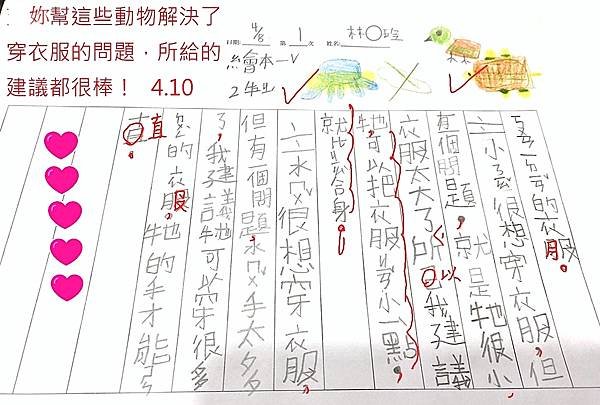 妳幫這些動物解決了
穿衣服的問題，所給的
建議都很棒！ 4.10
日期: 4/8 第 1 次 姓名: 林〇
繪本一
的衣服。
二、小ㄋㄠˇ很想穿衣服，但
有個問題，就是牠很小，
衣服太大了，所以我建議
牠可以把衣服小一點，
就比較合身。
三、水ㄇㄨˇ很想穿衣服，
但有一個問題水ㄇㄨˇ手太多
了，我建議牠可以穿很多
的衣服，牠的手才能
直。直